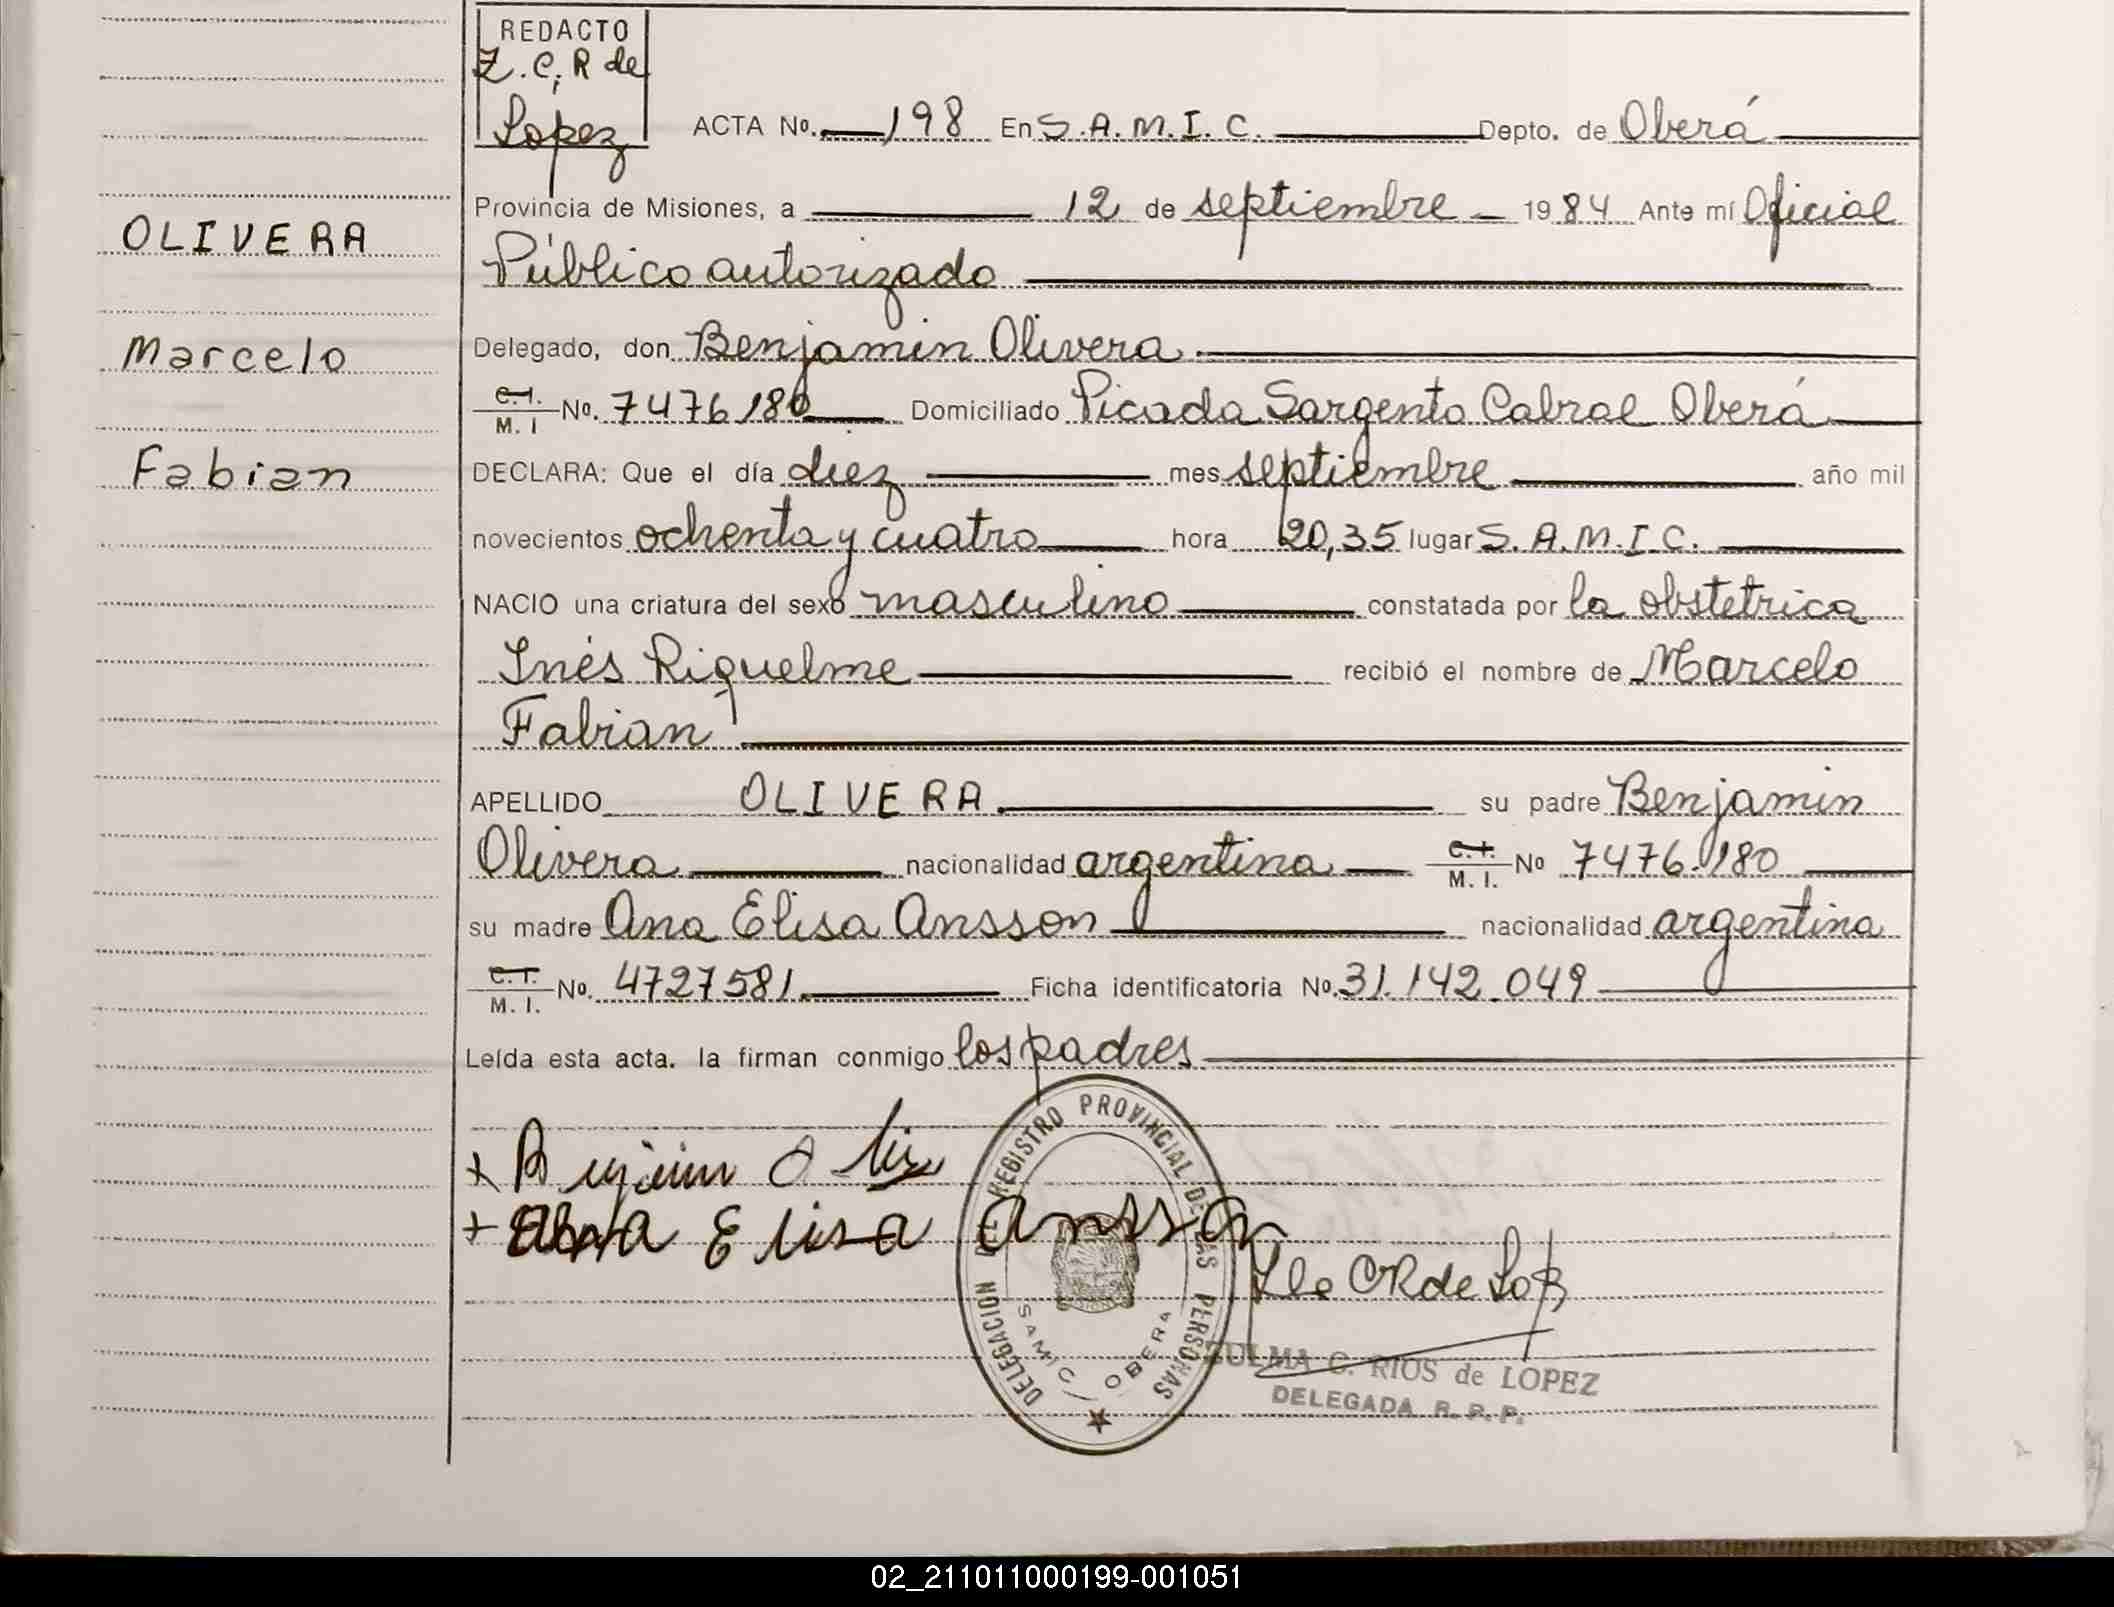 REDACTO
Z. C. R de
Lopez
ACTA No. 198 En S. A. M. I. C. Depto. de Oberá
Provincia de Misiones, a 12 de septiembre 1984 Ante mí Oficial
Público autorizado
OLIVERA
Delegado, don Benjamin Olivera
Marcelo
C. I. M. I No. 7476180 Domiciliado Picada Sargento Cabral Oberá
Fabian
DECLARA: Que el día diez mes septiembre año mil
novecientos ochenta y cuatro hora 20,35 lugar S. A. M. I. C.
NACIO una criatura del sexo masculino constatada por la obstetrica
Inés Riquelme recibió el nombre de Marcelo
Fabian
APELLIDO OLIVERA su padre Benjamin
Olivera nacionalidad argentina C. I. M. I. No 7476.180
su madre Ana Elisa Ansson nacionalidad argentina
C. I. M. I. No. 4727581 Ficha identificatoria No. 31.142.049
Leída esta acta. la firman conmigo los padres
Elisa
DELEGACION REGISTRO PROVINCIAL DE LAS PERSONAS
SAMIC OBERA
ZULMA C. RIOS de LOPEZ
DELEGADA R. P. P.
02_211011000199-001051